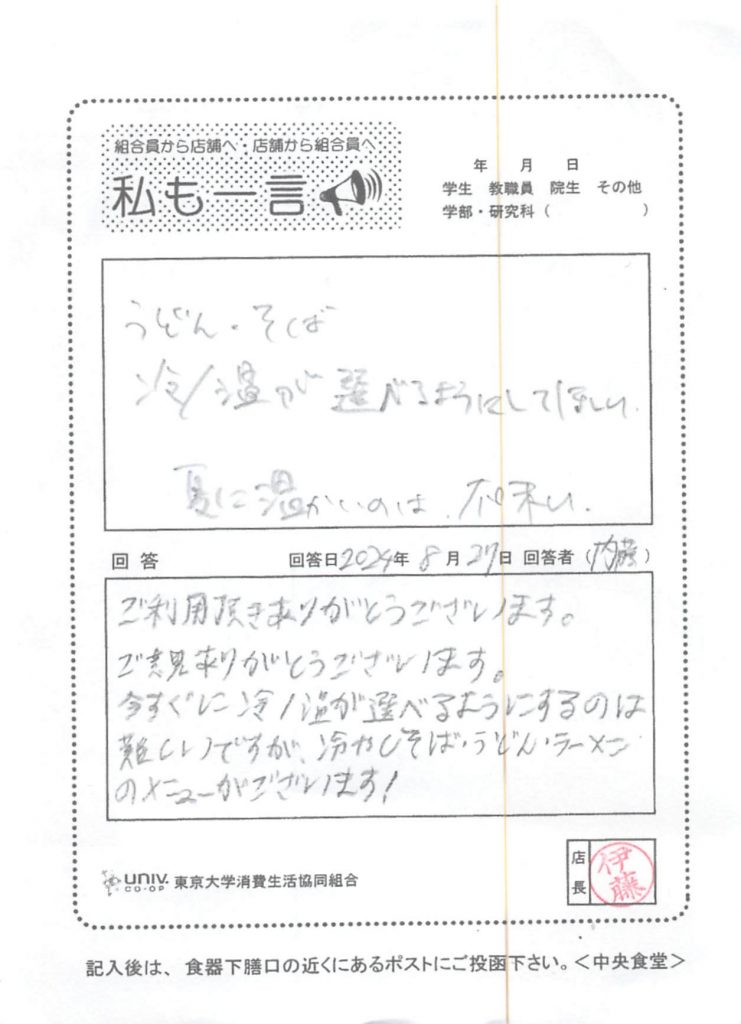 組合員から店舗へ・店舗から組合員へ
私も一言
年 月 日
学生 教職員 院生 その他
学部・研究科 ( )
うどん・そば
冷/温が選べるようにしてほしい.
夏に温かいのは.
回答 回答日2024年 8月27日 回答者 (内藤)
ご利用頂きありがとうございます。
ご意見ありがとうございます。
今すぐに冷/温が選べるようにするのは
難しいですが、冷やしそば・うどん・ラーメン
のメニューがございます!
UNIV. CO-OP 東京大学消費生活協同組合
店長 伊藤
記入後は、食器下膳口の近くにあるポストにご投函下さい。<中央食堂>